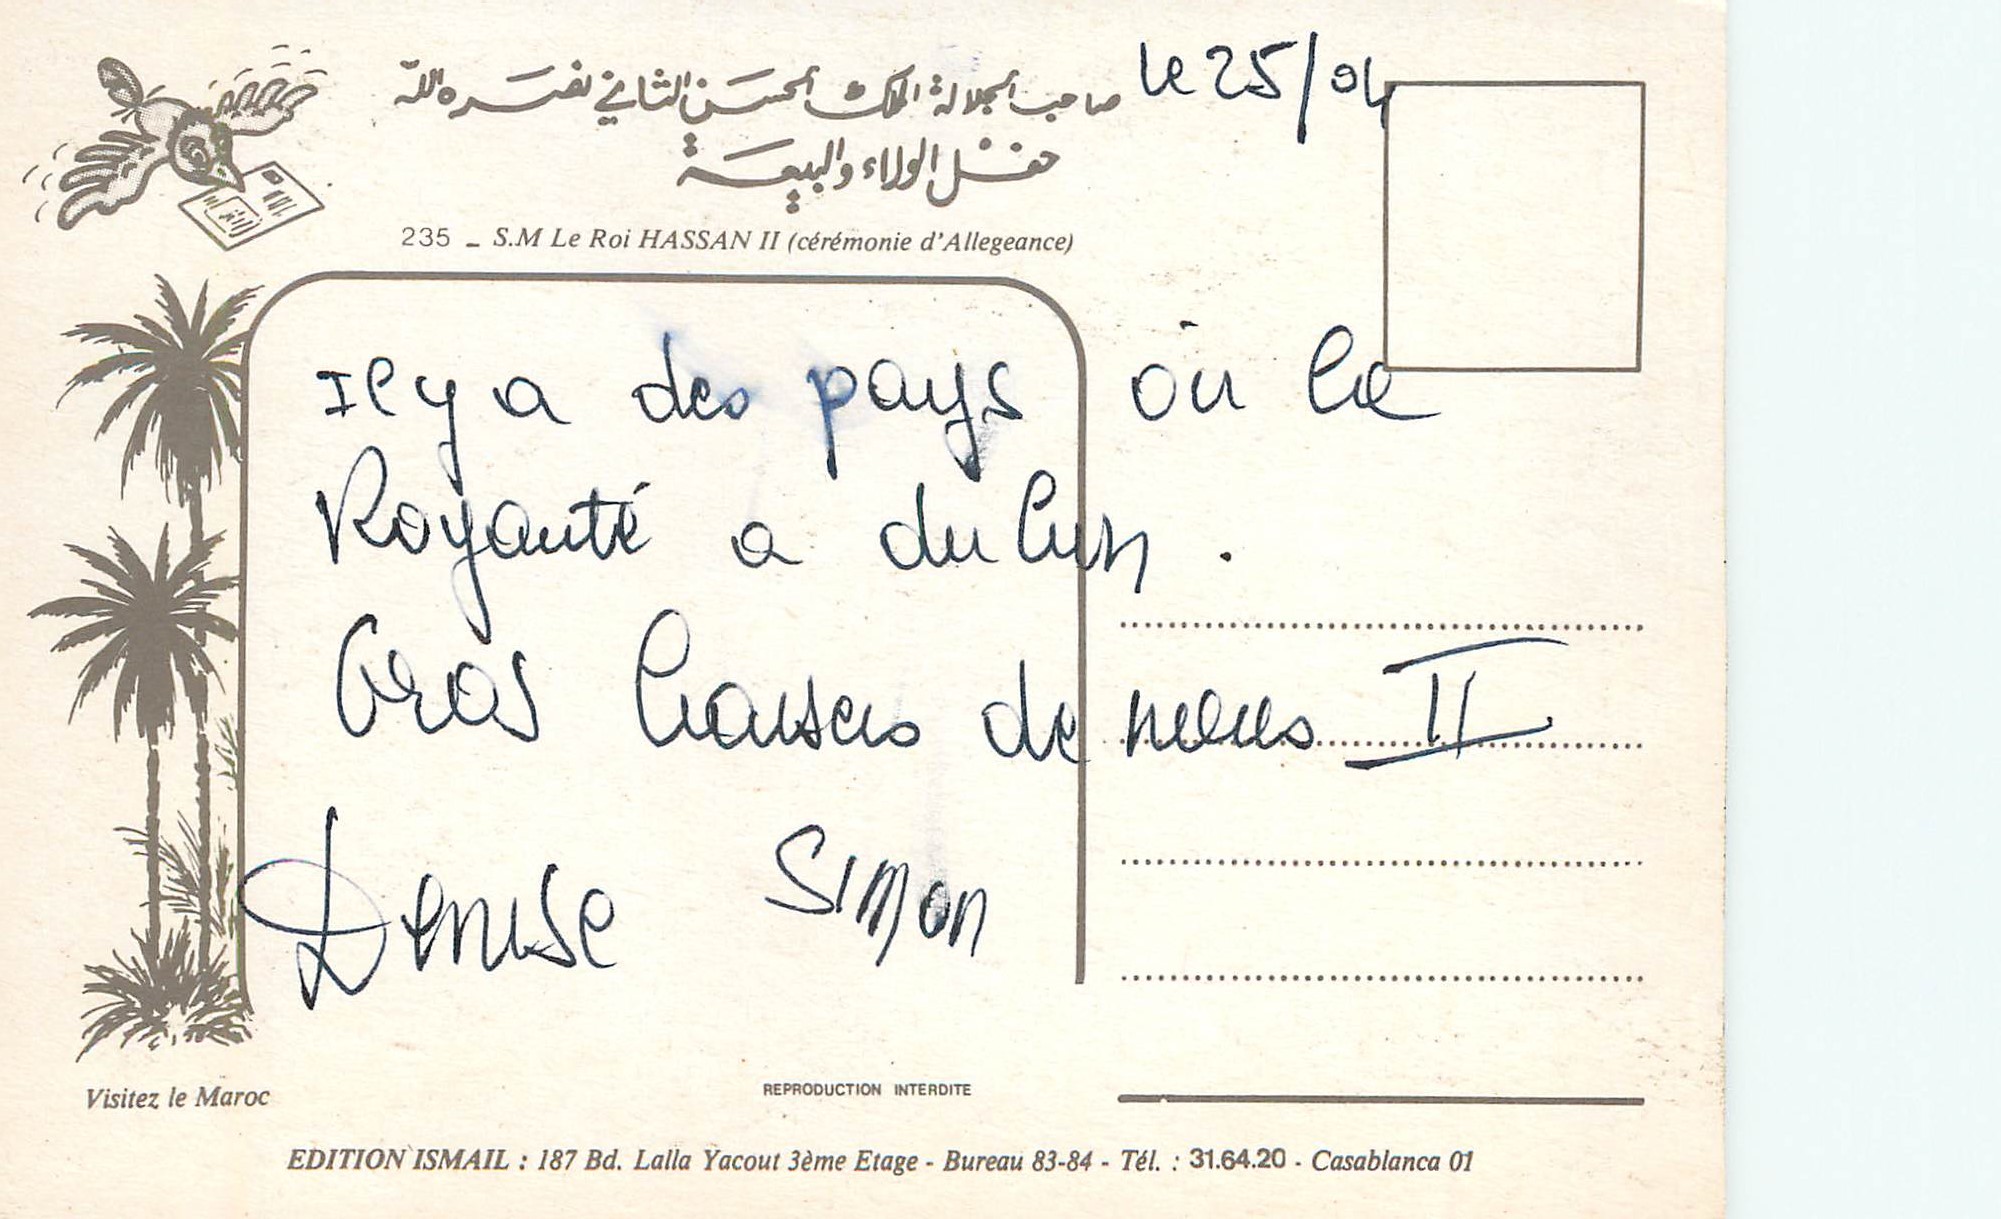 صاحب الجلالة الملك الحسن الثاني نصره الله
le 25/04
حفل الولاء والبيعة
235 _ S.M Le Roi HASSAN II (cérémonie d'Allegeance)
Il y a des pays où la
Royauté a du bon .
Gros baisers de nous II
Denise Simon
Visitez le Maroc
REPRODUCTION INTERDITE
EDITION ISMAIL : 187 Bd. Lalla Yacout 3ème Etage - Bureau 83-84 - Tél. : 31.64.20 - Casablanca 01